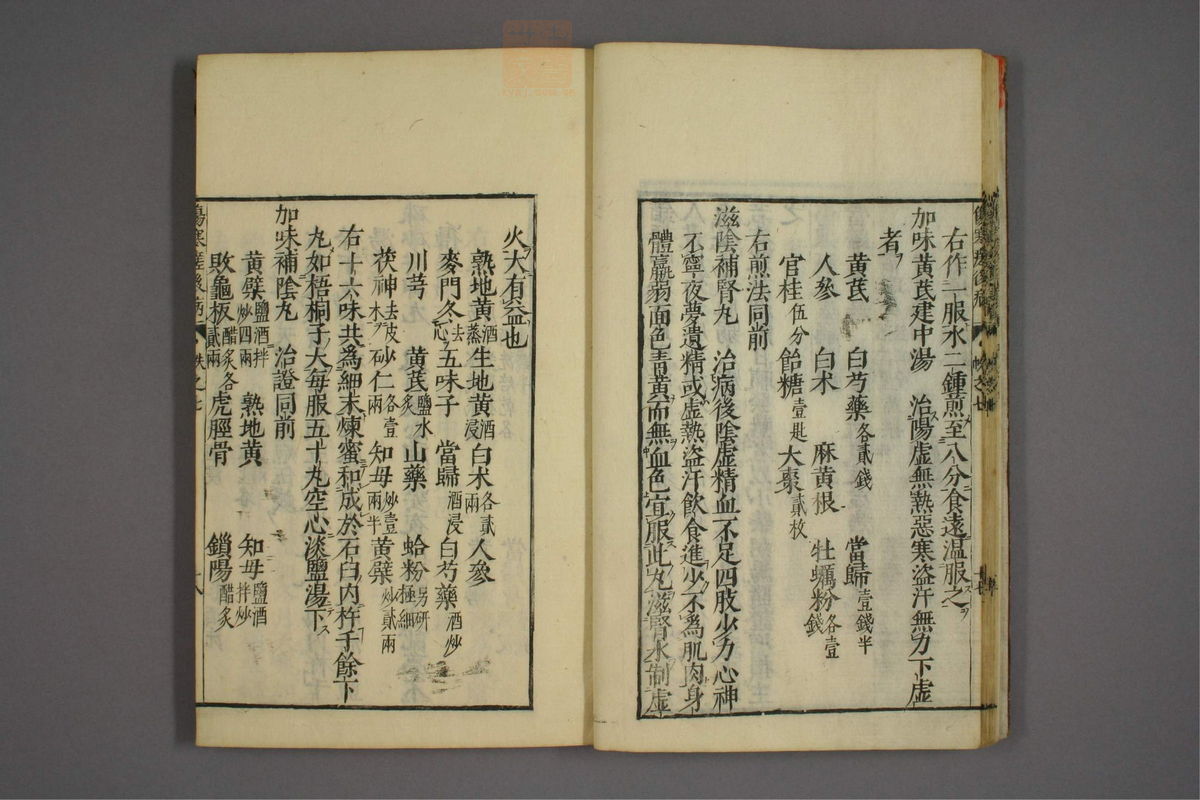 右作一服水二鍾煎至八分食遠温服之
加味黄芪建中湯 治陽虚無熱惡寒盗汗無力下虚
者
黄芪 白芍藥各貳錢 當歸壹錢半
人參 白术 麻黄根 牡蠣粉各壹錢
官桂伍分 飴糖壹匙 大棗貳枚
右煎法同前
滋陰補腎丸 治病後陰虚精血不足四肢少力心神
不寧夜夢遺精或虚熱盗汗飲食進少不爲肌肉身
體羸弱面色青黄而無血色宜服此丸滋腎水制虚
火大有益也
熟地黄酒蒸 生地黄酒浸 白术各貳兩 人參
麥門冬去心 五味子 當歸酒浸 白芍藥酒炒
川芎 黄芪鹽水炙 山藥 蛤粉另研極細
茯神去皮木 砂仁各壹兩 知母炒壹兩半 黄檗炒貳兩
右十六味共為細末煉蜜和成於石臼内杵千餘下
丸如梧桐子大每服五十丸空心淡鹽湯下
加味補陰丸 治證同前
黄檗鹽酒拌炒四兩 熟地黄 知母鹽酒拌炒
敗龜板醋炙各貳兩 虎脛骨 鎖陽醋炙
傷寒瘥後病